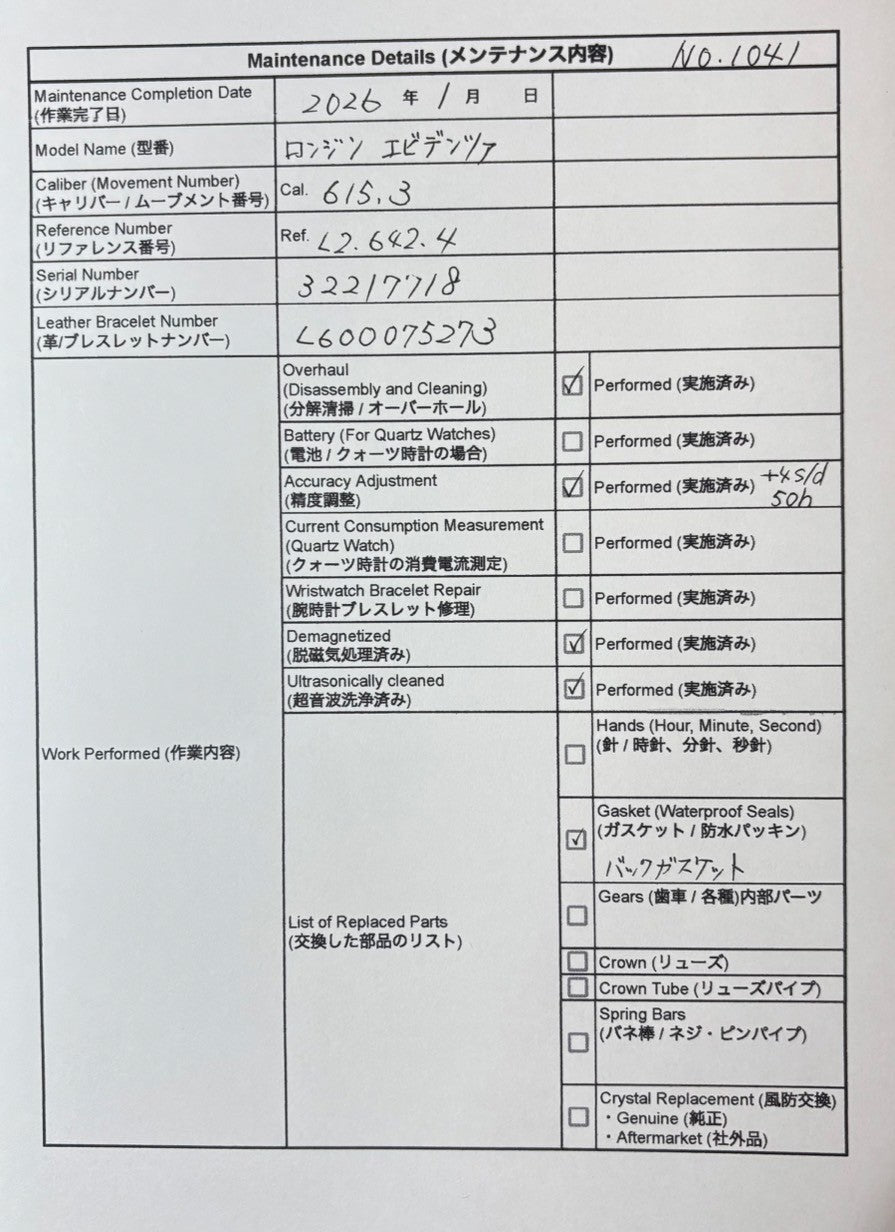 Maintenance Details (メンテナンス内容) NO.1041
Maintenance Completion Date
(作業完了日)
2026 年 1 月 日
Model Name (型番)
ロンジン エビデンツァ
Caliber (Movement Number)
(キャリバー / ムーブメント番号)
Cal. 615.3
Reference Number
(リファレンス番号)
Ref. L2.642.4
Serial Number
(シリアルナンバー)
32217718
Leather Bracelet Number
(革/ブレスレットナンバー)
L600075273
Work Performed (作業内容)
Overhaul
(Disassembly and Cleaning)
(分解清掃 / オーバーホール)
Performed (実施済み)
Battery (For Quartz Watches)
(電池 / クォーツ時計の場合)
Performed (実施済み)
Accuracy Adjustment
(精度調整)
Performed (実施済み) +4s/d
50h
Current Consumption Measurement
(Quartz Watch)
(クォーツ時計の消費電流測定)
Performed (実施済み)
Wristwatch Bracelet Repair
(腕時計ブレスレット修理)
Performed (実施済み)
Demagnetized
(脱磁気処理済み)
Performed (実施済み)
Ultrasonically cleaned
(超音波洗浄済み)
Performed (実施済み)
List of Replaced Parts
(交換した部品のリスト)
Hands (Hour, Minute, Second)
(針 / 時針、分針、秒針)
Gasket (Waterproof Seals)
(ガスケット / 防水パッキン)
バックガスケット
Gears (歯車 / 各種)内部パーツ
Crown (リューズ)
Crown Tube (リューズパイプ)
Spring Bars
(バネ棒 / ネジ・ピンパイプ)
Crystal Replacement (風防交換)
・Genuine (純正)
・Aftermarket (社外品)